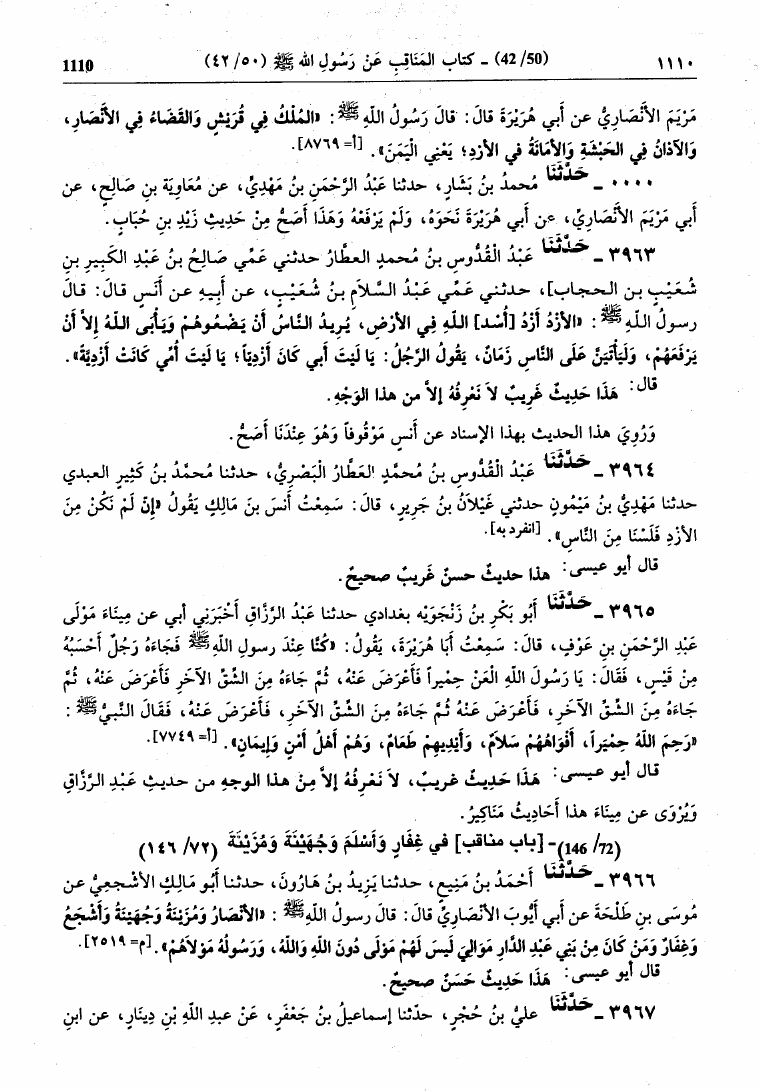 ١١١٠ (42/50) - كتاب المَنَاقِبِ عَنْ رَسُولِ الله ﷺ (٤٢/٥٠) 1110
مَرْيَمَ الأَنْصَارِيُّ عن أبي هُرَيْرَةَ قالَ: قالَ رَسُولُ اللّهِ ﷺ: «المُلْكُ فِي قُرَيْشٍ وَالقَضَاءُ فِي الأَنْصَارِ،
وَالآذانُ فِي الحَبَشَةِ وَالأَمَانَةُ في الأزدِ؛ يَعْنِي الْيَمَنَ». [أ= ٨٧٦٩].
٠٠٠٠ ـ حَدَّثَنَا مُحمدُ بنُ بَشَارٍ، حدثنا عَبْدُ الرَّحْمَنِ بنُ مَهْدِيٍّ، عن مُعَاوِيَةَ بنِ صَالِحٍ، عن
أبي مَرْيَمَ الأَنْصَارِيِّ، عن أبي هُرَيْرَةَ نَحْوَهُ، وَلَمْ يَرْفَعْهُ وَهَذَا أصَحُّ مِنْ حَدِيثِ زَيْدِ بنِ حُبَابٍ.
٣٩٦٣ ـ حَدَّثَنَا عَبْدُ الْقُدُّوسِ بنُ مُحمدٍ العطَّارُ حدثني عَمِّي صَالِحُ بنُ عَبْدِ الكَبِيرِ بنِ
شُعَيْبِ بنِ الحجابِ]، حدثني عَمِّي عَبْدُ السَّلاَمِ بنُ شُعَيْبٍ، عن أبِيهِ عن أنَسٍ قالَ: قالَ
رسولُ اللّهِ ﷺ: «الأزْدُ أزْدُ [أُسْد] اللّهِ فِي الأرْضِ، يُرِيدُ النَّاسُ أنْ يَضْعُوهُمْ وَيَأْبَى اللّهُ إلاَّ أنْ
يَرْفَعَهُمْ، وَلَيَأْتِيَنَّ عَلَى النَّاسِ زَمَانٌ، يَقُولُ الرَّجُلُ: يَا لَيْتَ أبي كَانَ أزْدِيَّاً؛ يَا لَيْتَ أُمِّي كَانَتْ أزْدِيَّةً».
قال: هَذَا حَدِيثٌ غَرِيبٌ لاَ نَعْرِفُهُ إلاَّ من هذا الوَجْهِ.
وَرُوِيَ هذا الحديث بهذا الإسناد عن أنَسٍ مَوْقُوفاً وَهُوَ عِنْدَنَا أصَحُّ.
٣٩٦٤ ـ حَدَّثَنَا عَبْدُ الْقُدُّوسِ بنُ مُحَمَّدٍ العطَّارُ الْبَصْرِيُّ، حدثنا مُحمَّدُ بنُ كَثِيرٍ العبدي
حدثنا مَهْدِيُّ بنُ مَيْمُونٍ حدثني غَيْلاَنُ بنُ جَرِيرٍ، قالَ: سَمِعْتُ أنَسَ بنَ مَالِكٍ يَقُولُ «إنْ لَمْ نَكُنْ مِنَ
الأزدِ فَلَسْنَا مِنَ النَّاسِ». [انفرد به].
قال أبو عيسى: هذا حديثٌ حسنٌ غَريبٌ صحيحٌ.
٣٩٦٥ ـ حَدَّثَنَا أَبُو بَكْرِ بنُ زَنْجَوَيْه بغدادي حدثنا عَبْدُ الرَّزَّاقِ أَخْبَرَنِي أبي عن مِينَاءَ مَوْلَى
عَبْدِ الرَّحْمَنِ بنِ عَوْفٍ، قالَ: سَمِعْتُ أبَا هُرَيْرَةَ، يَقُولُ: «كُنَّا عِنْدَ رسولِ اللّهِ ﷺ فَجَاءَهُ رَجُلٌ أحْسَبُهُ
مِنْ قَيْسٍ، فَقَالَ: يَا رَسُولَ اللهِ الْعَنْ حِمْيراً فَأَعْرَضَ عَنْهُ، ثُمَّ جَاءَهُ مِنَ الشِّقِّ الآخَرِ فَأَعْرَضَ عَنْهُ، ثُمَّ
جَاءَهُ مِنَ الشِّقِّ الآخَرِ، فَأَعْرَضَ عَنْهُ ثُمَّ جَاءَهُ مِنَ الشِّقِّ الآخَرِ، فَأَعْرَضَ عَنْهُ، فَقَالَ النَّبِيُّ ﷺ:
«رَحِمَ اللّهُ حِمْيَراً، أفْوَاهُهُمْ سَلاَمٌ، وَأَيْدِيهِمْ طَعَامٌ، وَهُمْ أهْلُ أَمْنٍ وَإيمَانٍ». [أ= ٧٧٤٩].
قال أبو عيسى: هَذَا حَدِيثٌ غريبٌ، لاَ نَعْرِفُهُ إلاَّ مِنْ هذا الوجهِ من حديثِ عَبْدِ الرَّزَّاقِ
وَيُرْوَى عن مِينَاءَ هذا أَحَادِيثُ مَنَاكِيرُ.
(146/72) - [باب مناقب] في غِفَارٍ وَأَسْلَمَ وَجُهَيْنَةَ وَمُزَيْنَةَ (١٤٦/٧٢)
٣٩٦٦ ـ حَدَّثَنَا أَحْمَدُ بنُ مَنِيعٍ، حدثنا يَزِيدُ بنُ هَارُونَ، حدثنا أَبُو مَالِكٍ الأشجعيُّ عن
مُوسَى بنِ طَلْحَةَ عن أبي أَيُّوبَ الأنْصَارِيِّ قالَ: قالَ رسولُ اللّهِ ﷺ: «الأنْصَارُ وَمُزَيْنَةُ وَجُهَيْنَةُ وَأَشْجَعُ
وَغِفَارٌ وَمَنْ كَانَ مِنْ بَنِي عَبْدِ الدَّارِ مَوَالِيَ لَيْسَ لَهُمْ مَوْلَى دُونَ اللّهِ وَاللّهُ، وَرَسُولُهُ مَوْلاَهُمْ». [م= ٢٥١٩].
قال أبو عيسى: هَذَا حَدِيثٌ حَسَنٌ صحيحٌ.
٣٩٦٧ ـ حَدَّثَنَا عليُّ بنُ حُجْرٍ، حدّثنا إسماعيلُ بنُ جَعْفَرٍ، عَنْ عبدِ اللّهِ بْنِ دِينَارٍ، عن ابنِ